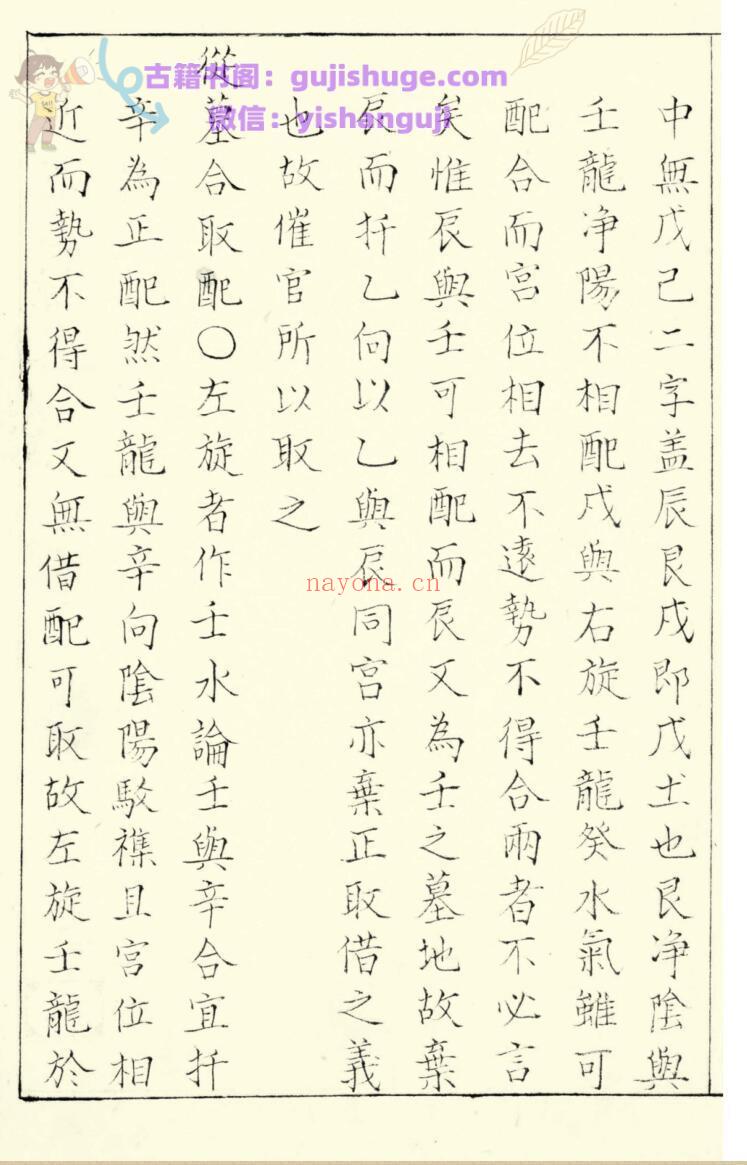 古籍书阁：gujishuge.com
微信：yishanguji
中無戊己二字盖辰艮戍即戊土也艮净陰與
壬龍净陽不相配戍與右旋壬龍癸水氣雖可
配合而宮位相去不遠勢不得合兩者不必言
矣惟辰與壬可相配而辰又為壬之墓地故棄
辰而扦乙向以乙與辰同宮亦棄正取借之義
也故催官所以取之
從墓合取配〇左旋者作壬水論壬與辛合宜扦
辛為正配然壬龍與辛向陰陽駁襍且宮位相
近而勢不得合又無借配可取故左旋壬龍於
nayona.cn